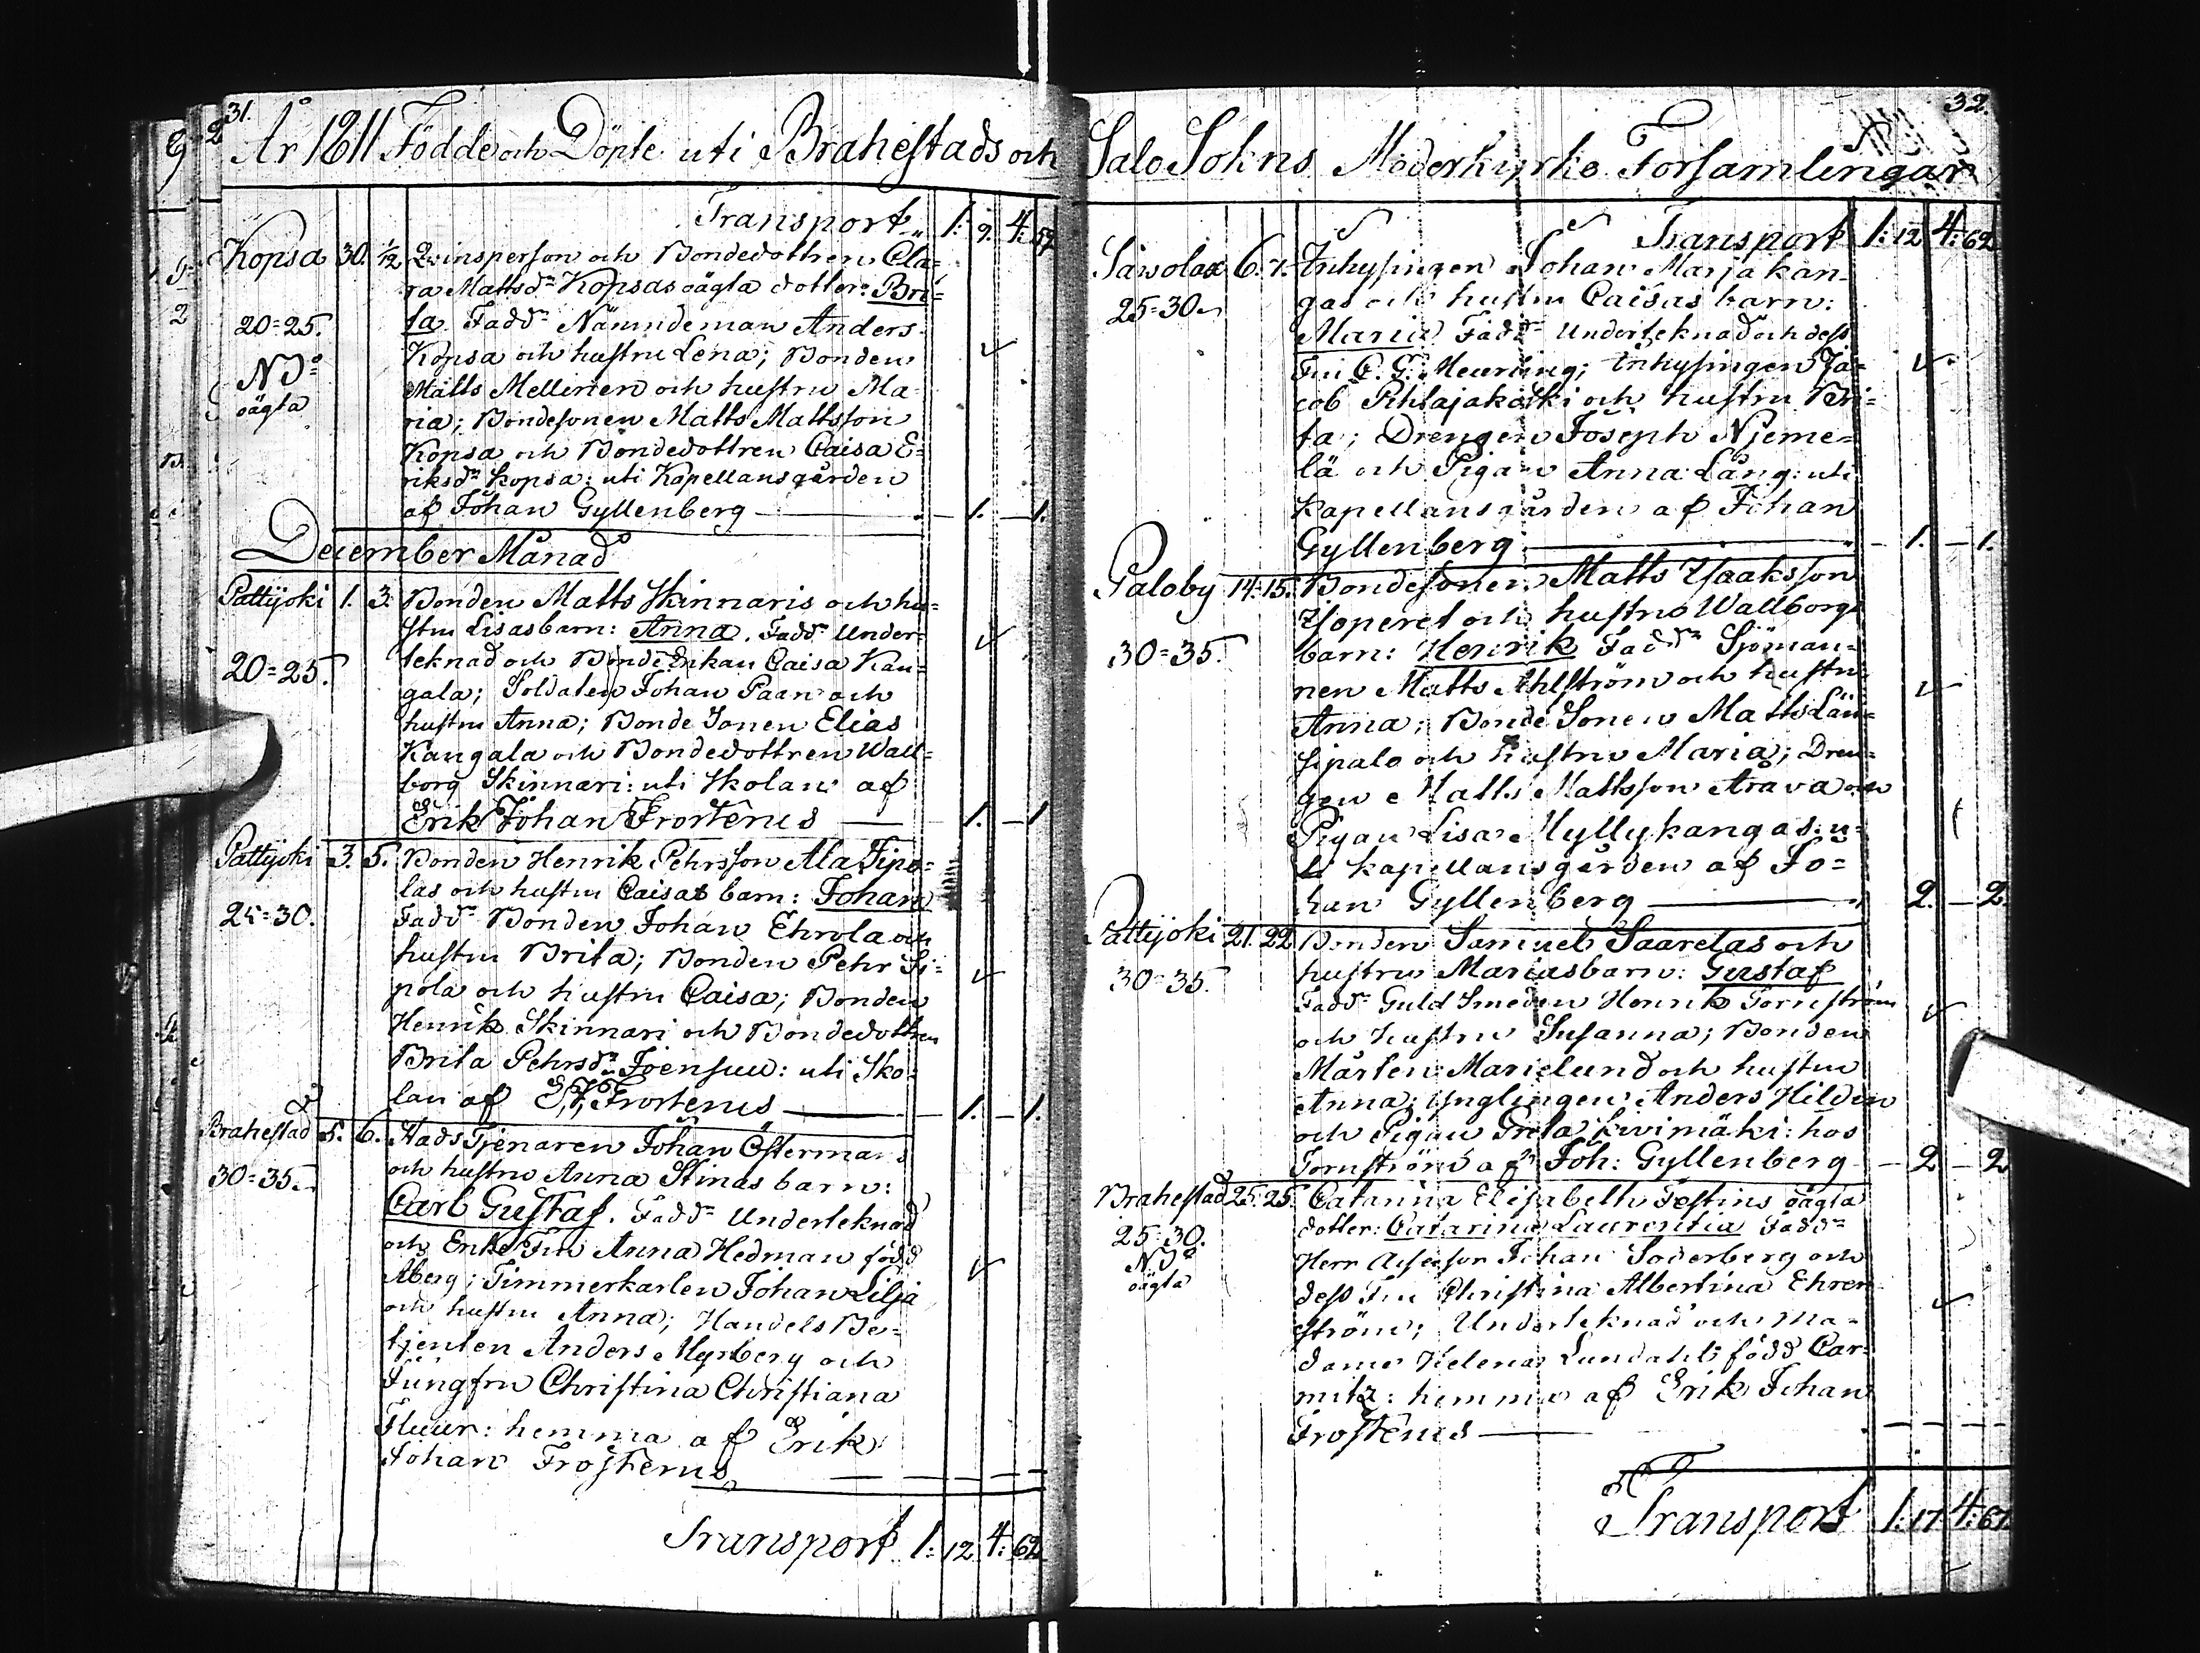 31.
År 1811 Födde och Döpte uti Brahestads och
Transport 1: 9. 4: 59
Kopsa 30. 1/12 Qvinsperson och Bondedottren Cla=
ra Mattsdr Kopsas oägta dotter: Bri=
20=25. ta. Faddr Nämndeman Anders
Kopsa och hustru Lena; Bonden
NB: Matts Mellinen och hustru Ma-
oägta ria; Bondesonen Matts Mattsson
Kopsa och Bondedottren Caisa E=
riksdr Kopsa: uti Kapellansgården
af Johan Gyllenberg — 1. — 1.
December Månad
Pattijoki 1. 3. Bonden Matts Skinnaris och hu=
stru Lisas barn: Anna. Faddr Under=
20=25. teknad och Bonde Enkan Caisa Kan=
gala; Soldaten Johan Paan och
hustru Anna; Bonde Sonen Elias
Kangala och Bondedottren Wall=
borg Skinnari: uti Skolan af
Erik Johan Frosterus — 1. — 1
Pattijoki 3. 5. Bonden Henrik Pehrsson Ala Sipo=
las och hustru Caisas barn: Johan
25=30. Faddr Bonden Johan Ehrola och
hustru Brita; Bonden Pehr Si=
pola och hustru Caisa; Bonden
Henrik Skinnari och Bondedottren
Brita Pehrsdr Joensuu: uti Sko=
lan af E. J. Frosterus — 1. — 1.
Brahestad 5. 6. Stads Tjenaren Johan Östermans
och hustru Anna Stinas barn:
30=35. Carl Gustaf. Faddr Underteknad
och Enke Fru Anna Hedman född
Åberg; Timmerkarlen Johan Lilja
och hustru Anna; Handels Be=
tjenten Anders Myrberg och
Jungfru Christina Christiana
Fluur: hemma af Erik
Johan Frosterus — — — —
Transport 1: 12 4: 62
32.
Salo Sokns Moderkyrko Forsamlingar
Transport 1: 12 4: 62
Sawolax 6. 7. Inhysingen Johan Marjakan-
gas och hustru Caisas barn:
25=30. Maria Faddr Underteknad och dess
Fru C. G. Meurling; inhysingen Ja=
cob Pihlajakoski och hustru Bri=
ta; Drengen Joseph Njeme=
lä och Pigan Anna Lång: uti
Kapellansgården af Johan
Gyllenberg — 1. — 1.
Paloby 14. 15. Bondesonen Matts Isaaksson
Isoperet och hustru Wallborgs
30=35. barn: Henrik Faddr Sjöman=
nen Matts Ahlström och hustru
Anna; Bonde Sonen Matts Län=
sipalo och hustru Maria; Dren=
gen Matts Mattsson Arava och
Pigan Lisa Myllykangas: u=
ti kapellansgården af Jo=
han Gyllenberg — 2. — 2.
Pattijoki 21. 22 Bonden Samuel Saarelas och
30=35. hustru Marias barn: Gustaf
Faddr Guld Smeden Henrik Tornström
och hustru Susanna; Bonden
Mårten Marielund och hustru
Anna; ynglingen Anders Hildén
och Pigan Greta Kivimäki: hos
Tornström af Joh: Gyllenberg — 2 — 2
Brahestad 25. 25. Catarina Elisabeth Festins oägta
25=30. dotter: Catarina Laurentia Faddr
NB Herr Assessor Johan Soderberg och
oägta dess Fru Christina Albertina Ehren
ström; Underteknad och Ma=
dame Helena Lundahl född Car=
mitz: hemma af Erik Johan
Frosterus — — — —
Transport 1: 17 4: 67.